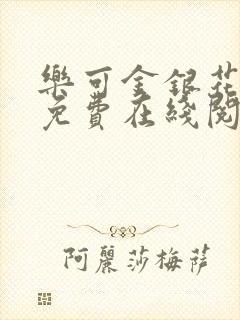 樂可金銀花
免費在綫閱
阿麗莎梅薩